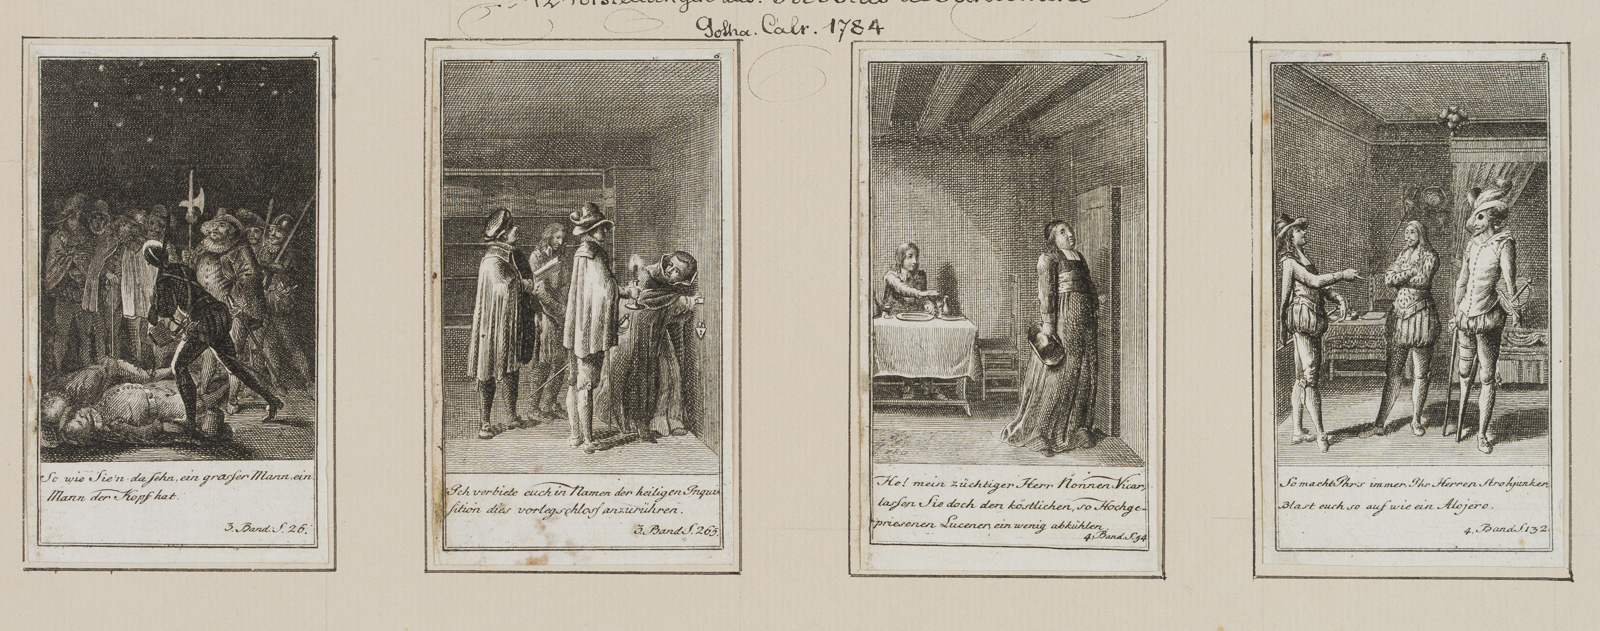 12 Vorstellungen aus:
Gotha. Calr. 1784
6.
7.
8.
So wie Sie'n da sehn, ein grosser Mann, ein
Mann der Kopf hat.
3. Band. S. 26.
Ich verbiete euch in Namen der heiligen Inqui
sition dies vorlegschloss anzurühren.
3. Band. S. 265.
He! mein züchtiger Herr Nonnen Vicar,
lassen Sie doch den köstlichen, so Hochge-
priesenen Lucener, ein wenig abkühlen.
4. Band. S. 54
So macht Ihrs immer, Ihr Herren Strohjunker,
Blast euch so auf wie ein Alojero.
4. Band S. 132.